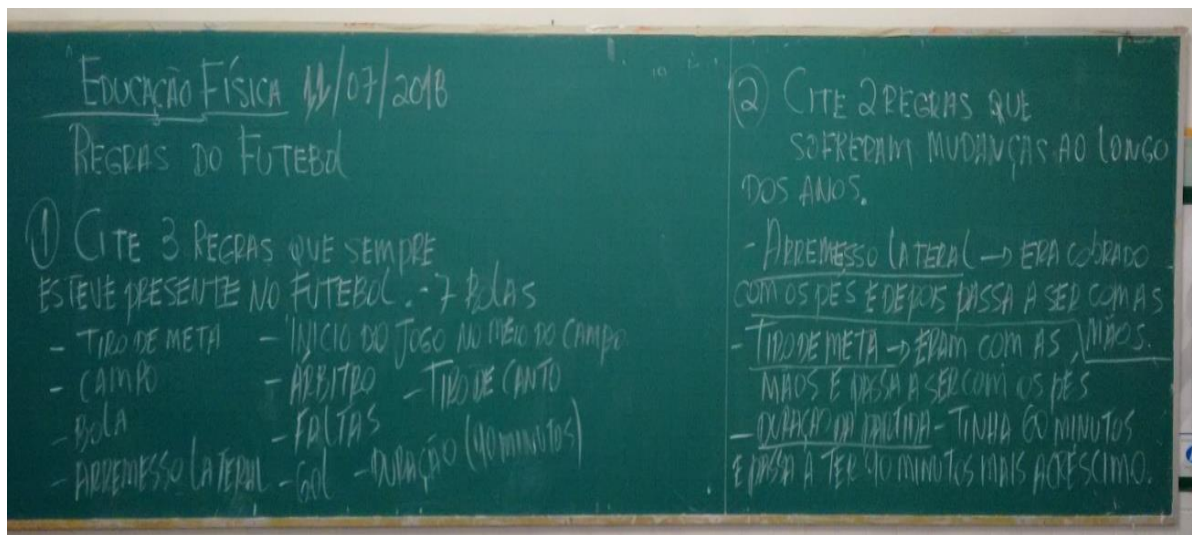 EDUCAÇÃO FÍSICA 11/07/2018
REGRAS DO FUTEBOL
① CITE 3 REGRAS QUE SEMPRE
ESTEVE PRESENTE NO FUTEBOL. - 7 BOLAS
- TIRO DE META - INÍCIO DO JOGO NO MEIO DO CAMPO
- CAMPO - ÁRBITRO - TIRO DE CANTO
- BOLA - FALTAS
- ARREMESSO LATERAL - GOL - DURAÇÃO (90 MINUTOS)
② CITE 2 REGRAS QUE
SOFRERAM MUDANÇAS AO LONGO
DOS ANOS.
- ARREMESSO LATERAL → ERA COBRADO
COM OS PÉS E DEPOIS PASSA A SER COM AS
MÃOS.
- TIRO DE META → ERAM COM AS
MÃOS E PASSA A SER COM OS PÉS
- DURAÇÃO DA PARTIDA - TINHA 60 MINUTOS
E PASSA A TER 90 MINUTOS MAIS ACRÉSCIMO.